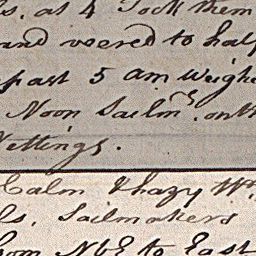 ls. at 4 Took them
and veered to half
past 5 am Weighe
Noon Sailmrs. onth
Nettings.
Calm & hazy Wr.
ls, Sailmakers
from NbE to East